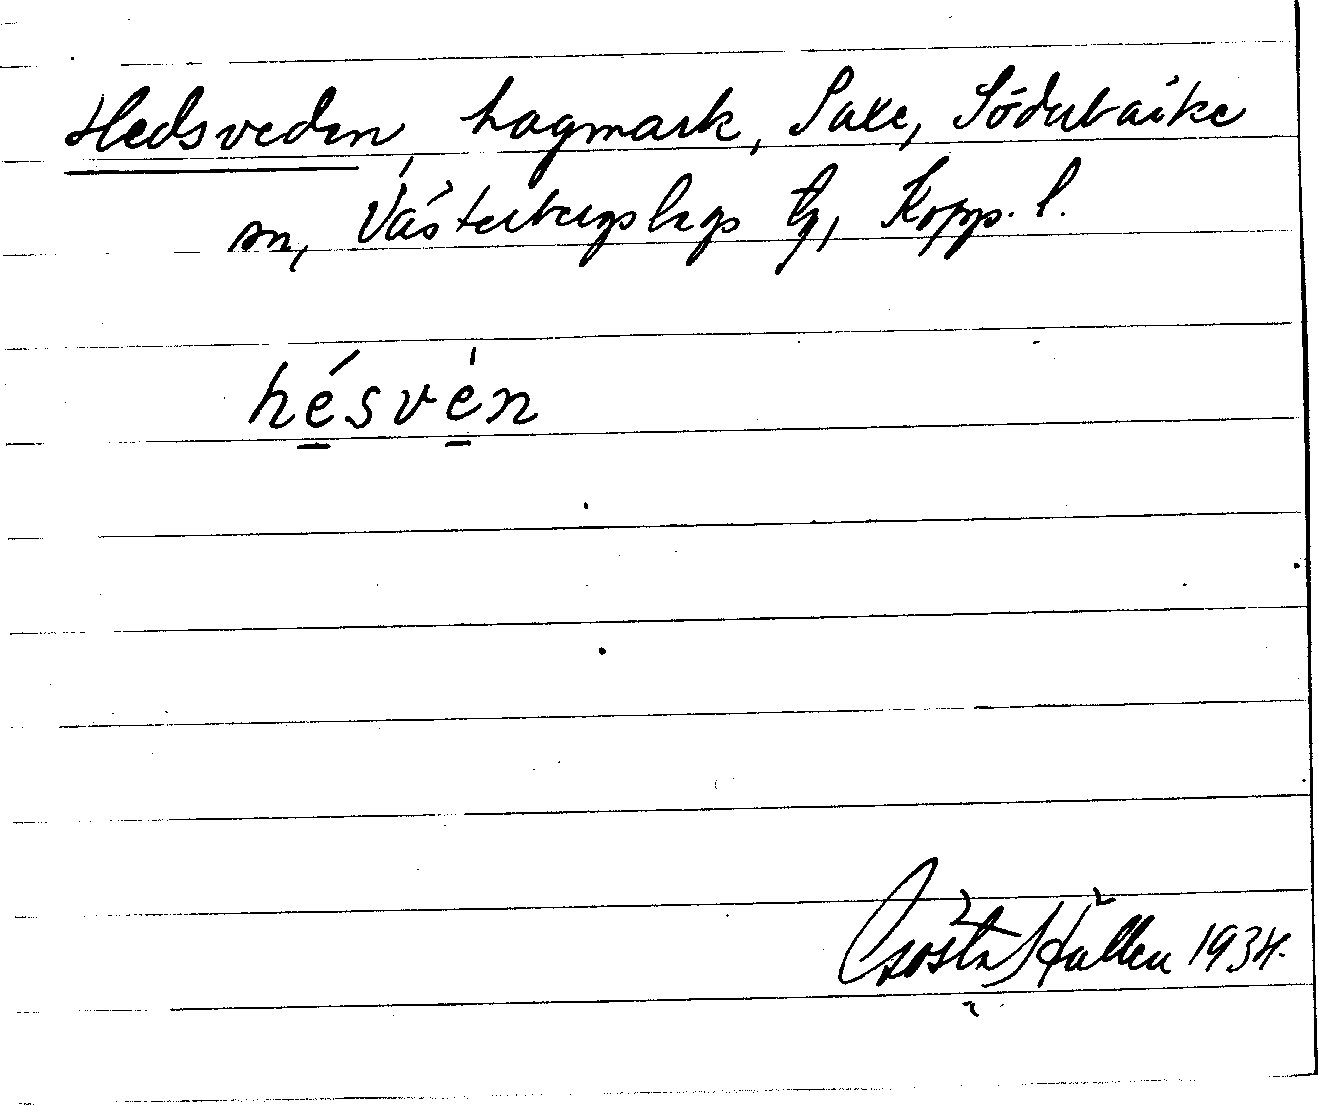 Hedsveden, hagmark, Saxe, Söderbärke
sn, Västerbergslags tg, Kopp. l.
hésvén
Gösta Hallén 1934.